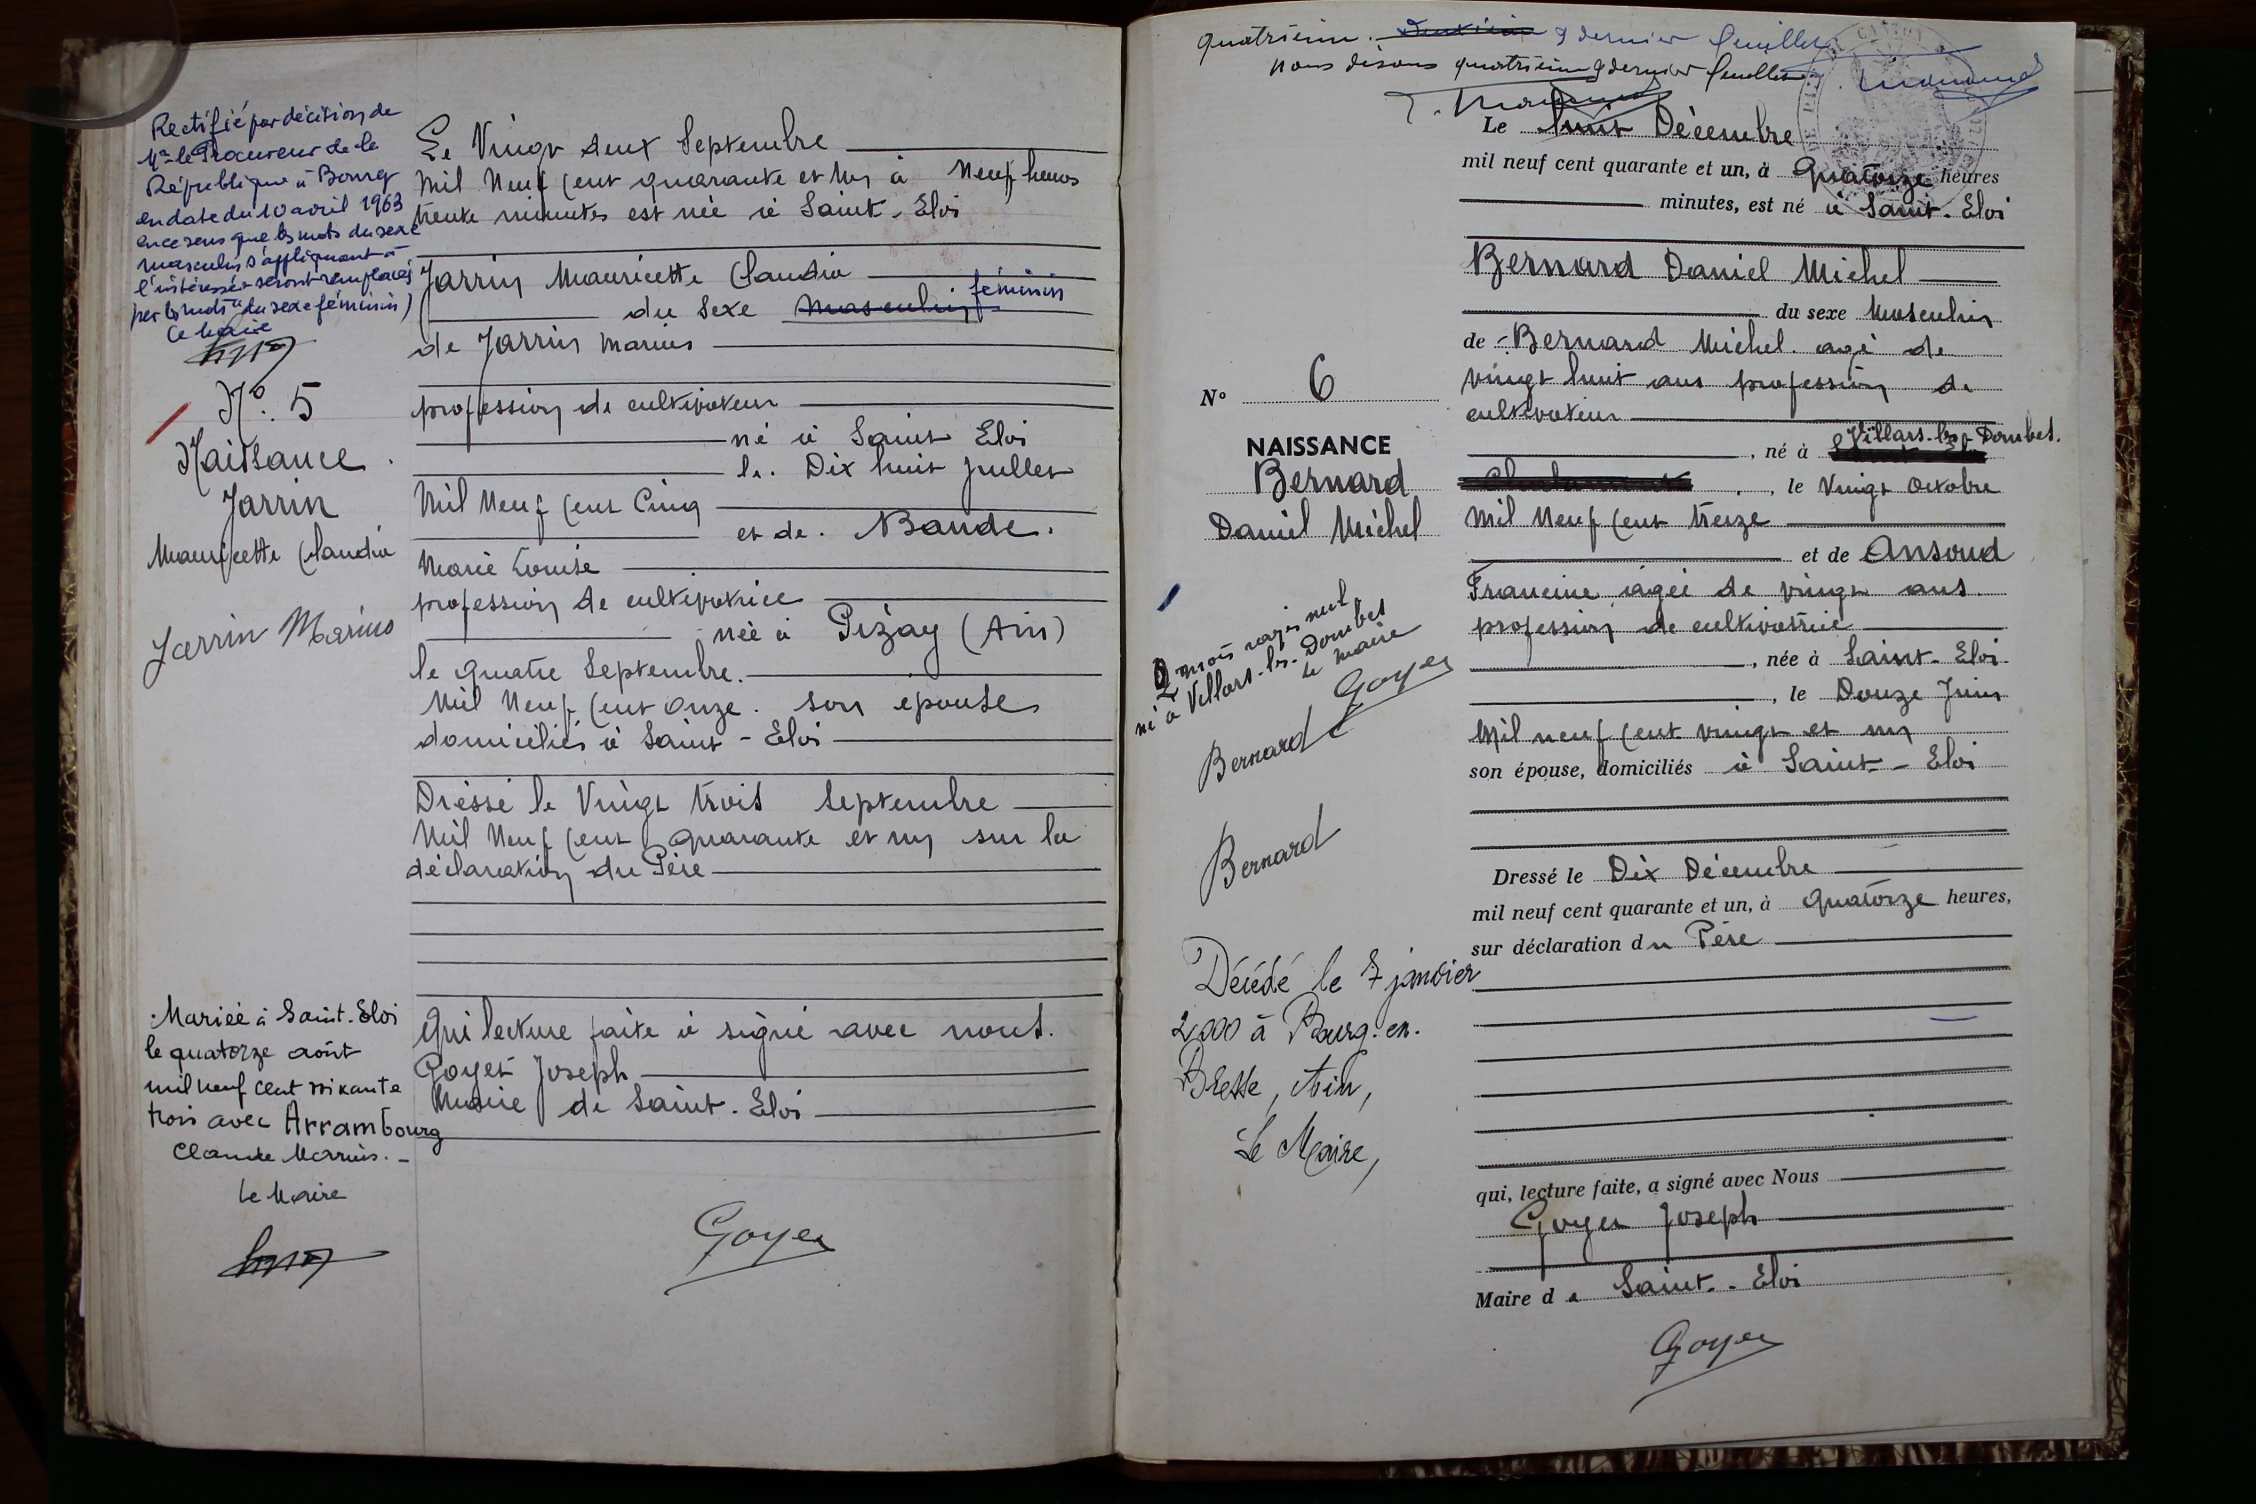 Rectifié par décision de
Mr le Procureur de la
République à Bourg
en date du 10 avril 1963
en ce sens que les mots du sexe
masculin s'appliquant à
l'intéressée seront remplacés
par les mots "du sexe féminin)
Le Maire
Nº. 5
Naissance
Jarrin
Mauricette Claudia
Jarrin Marius
Mariée à Saint-Eloi
le quatorze août
mil neuf cent soixante
trois avec Arrambourg
Claude Marius. -
Le Maire
Le Vingt deux Septembre
Mil Neuf Cent quarante et un à Neuf heures
trente minutes est née à Saint-Eloi
Jarrin Mauricette Claudia
du sexe masculin féminin
de Jarrin Marius
profession de cultivateur
né à Saint Eloi
le. Dix huit Juillet
Mil Neuf Cent Cinq
et de. Bande.
Marie Louise
profession de cultivatrice
née à Pizay (Ain)
le quatre Septembre.
Mil Neuf Cent onze. son épouse
domiciliés à Saint-Eloi
Dressé le Vingt trois Septembre
Mil Neuf Cent quarante et un sur la
déclaration du Père
Qui lecture faite a signé avec nous.
Goyet Joseph
Maire de Saint-Eloi
Goyet
quatrième. Deuxième & dernier feuillet
nous disons quatrième & dernier feuillet.
Nº 6
NAISSANCE
Bernard
Daniel Michel
2 mots rayés nuls
né à Villars-les-Dombes
Le Maire
Goyet
Bernard
Bernard
Décédé le 7 janvier
2000 à Bourg-en-
Bresse, Ain,
Le Maire,
Le huit Décembre
mil neuf cent quarante et un, à Quatorze heures
minutes, est né à Saint-Eloi
Bernard Daniel Michel
du sexe Masculin
de Bernard Michel. agé de
vingt huit ans profession de
cultivateur
, né à Villars-les-Dombes.
, le Vingt Octobre
Mil Neuf Cent treize
et de Ansoud
Francine agée de vingt ans.
profession de cultivatrice
, née à Saint-Eloi.
, le Douze Juin
Mil neuf Cent vingt et un
son épouse, domiciliés à Saint-Eloi
Dressé le Dix Décembre
mil neuf cent quarante et un, à Quatorze heures,
sur déclaration du Père
qui, lecture faite, a signé avec Nous
Goyet Joseph
Maire de Saint-Eloi
Goyet